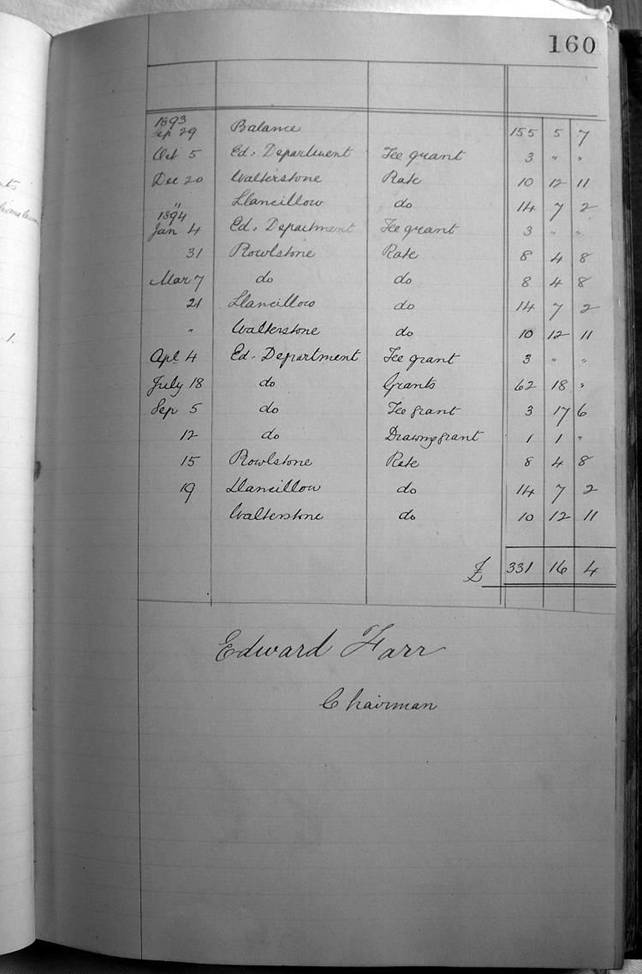 160
1893
Sep 29 Balance 155 5 7
Oct 5 Ed. Department Fee grant 3 " "
Dec 20 Walterstone Rate 10 12 11
" Llancillow do 14 7 2
1894
Jan 4 Ed. Department Fee grant 3 " "
31 Rowlstone Rate 8 4 8
Mar 7 do do 8 4 8
21 Llancillow do 14 7 2
" Walterstone do 10 12 11
Apl 4 Ed. Department Fee grant 3 " "
July 18 do Grants 62 18 "
Sep 5 do Fee grant 3 17 6
12 do Drawing grant 1 1 "
15 Rowlstone Rate 8 4 8
19 Llancillow do 14 7 2
Walterstone do 10 12 11
£ 331 16 4
Edward Farr
Chairman